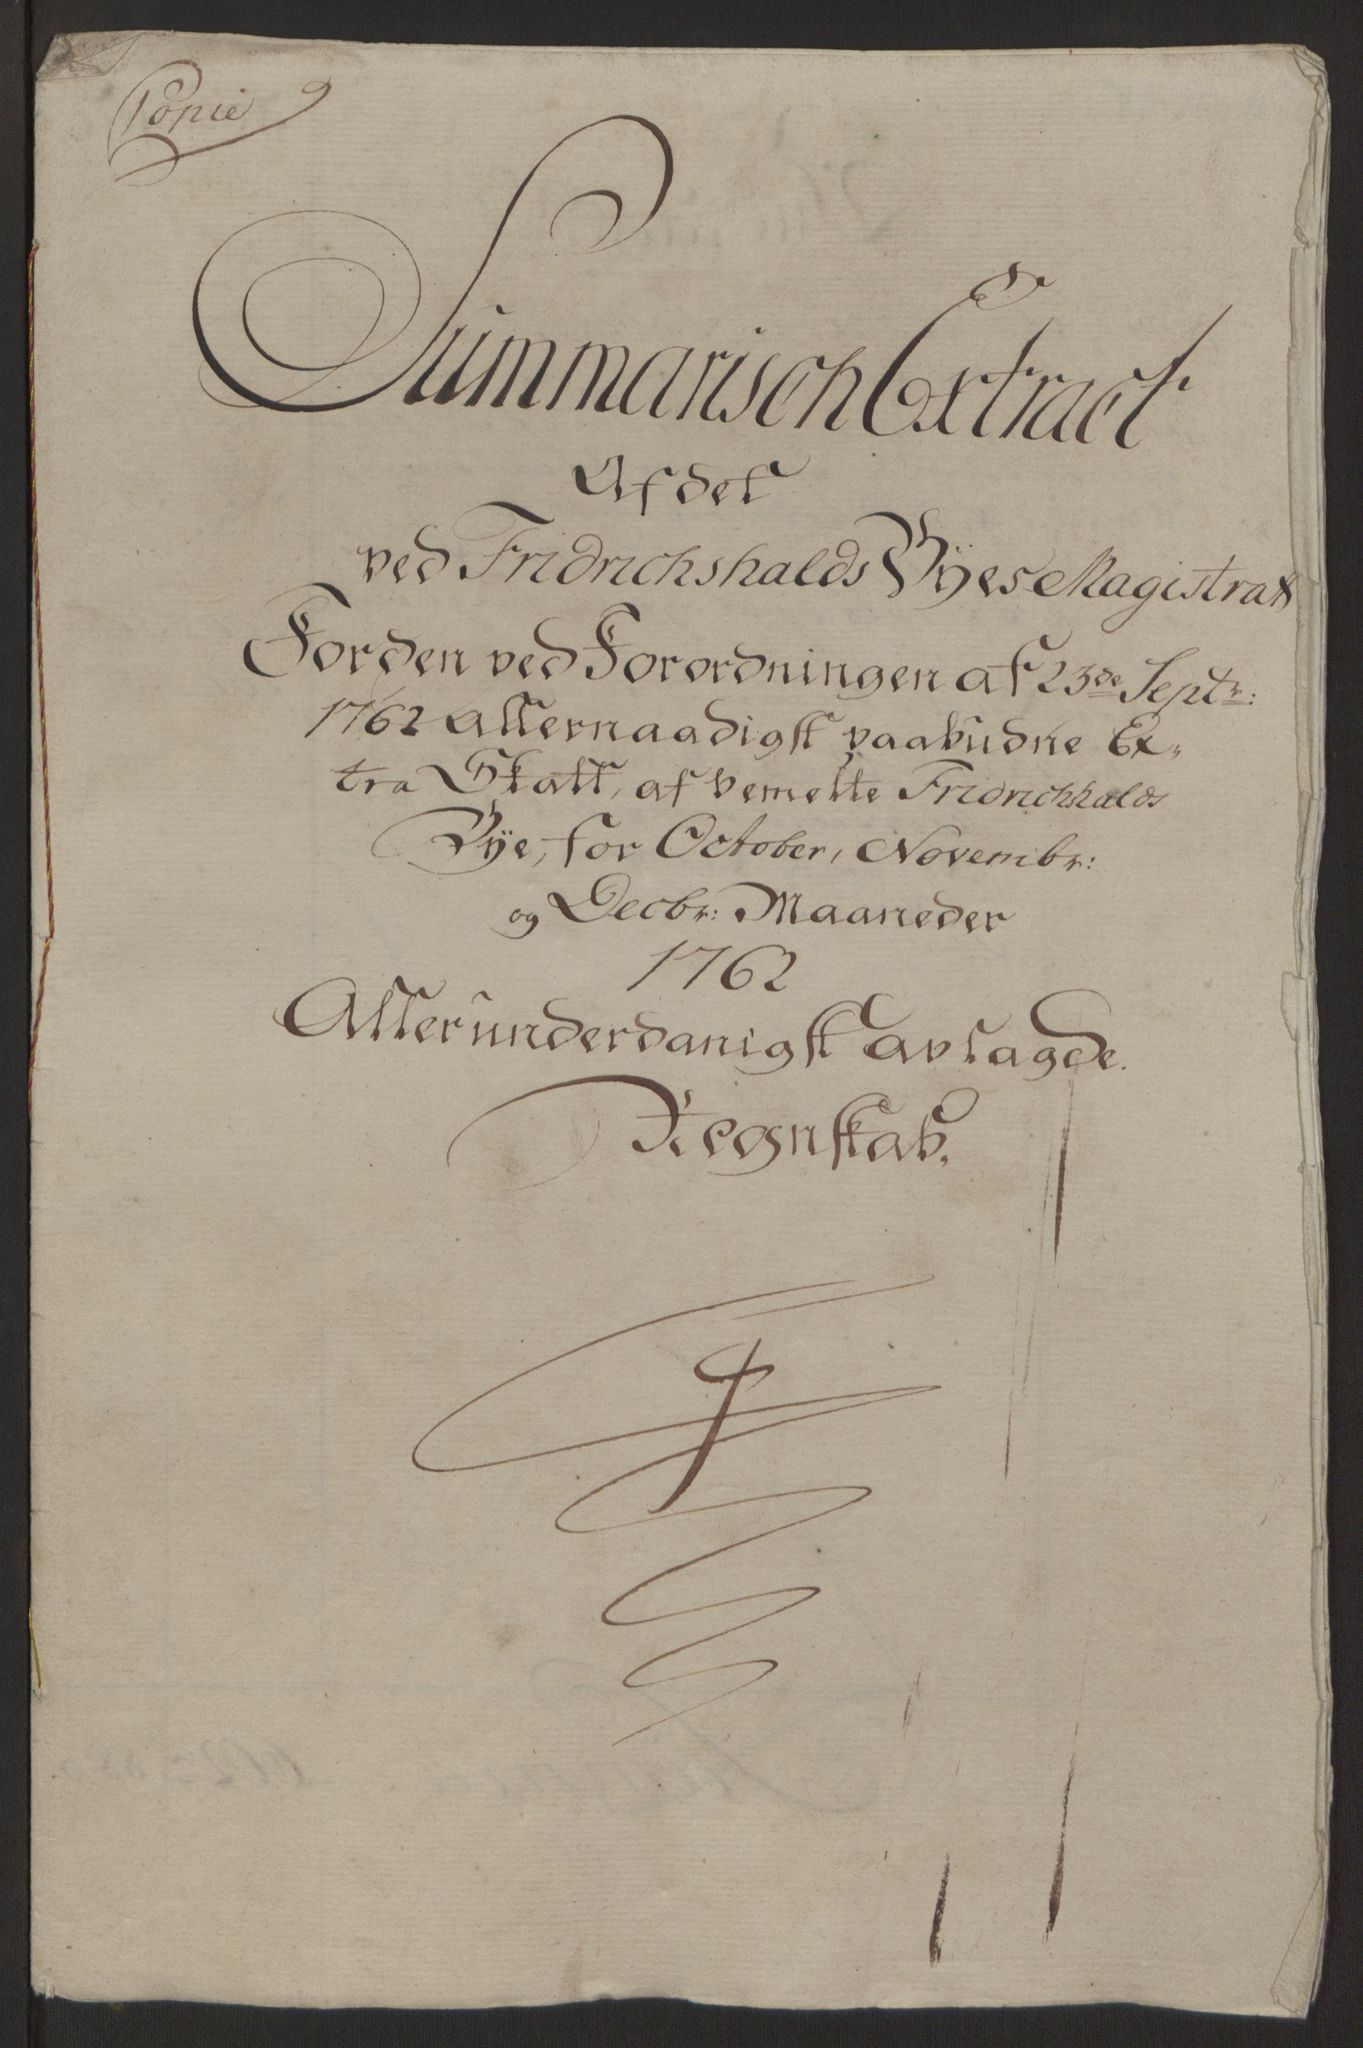 Copie
Summarisch Extract
Af det
ved Fridrichshalds Byes Magistrat
For den ved Forordningen af 23de Septr:
1762 allernaadigst paabudne Ex-
tra Skatt, af bemelte Fridrichhalds
Bye, for October, Novembr:
og Decbr: Maaneder
1762
Allerunderdanigst aflagde
Regnskab.